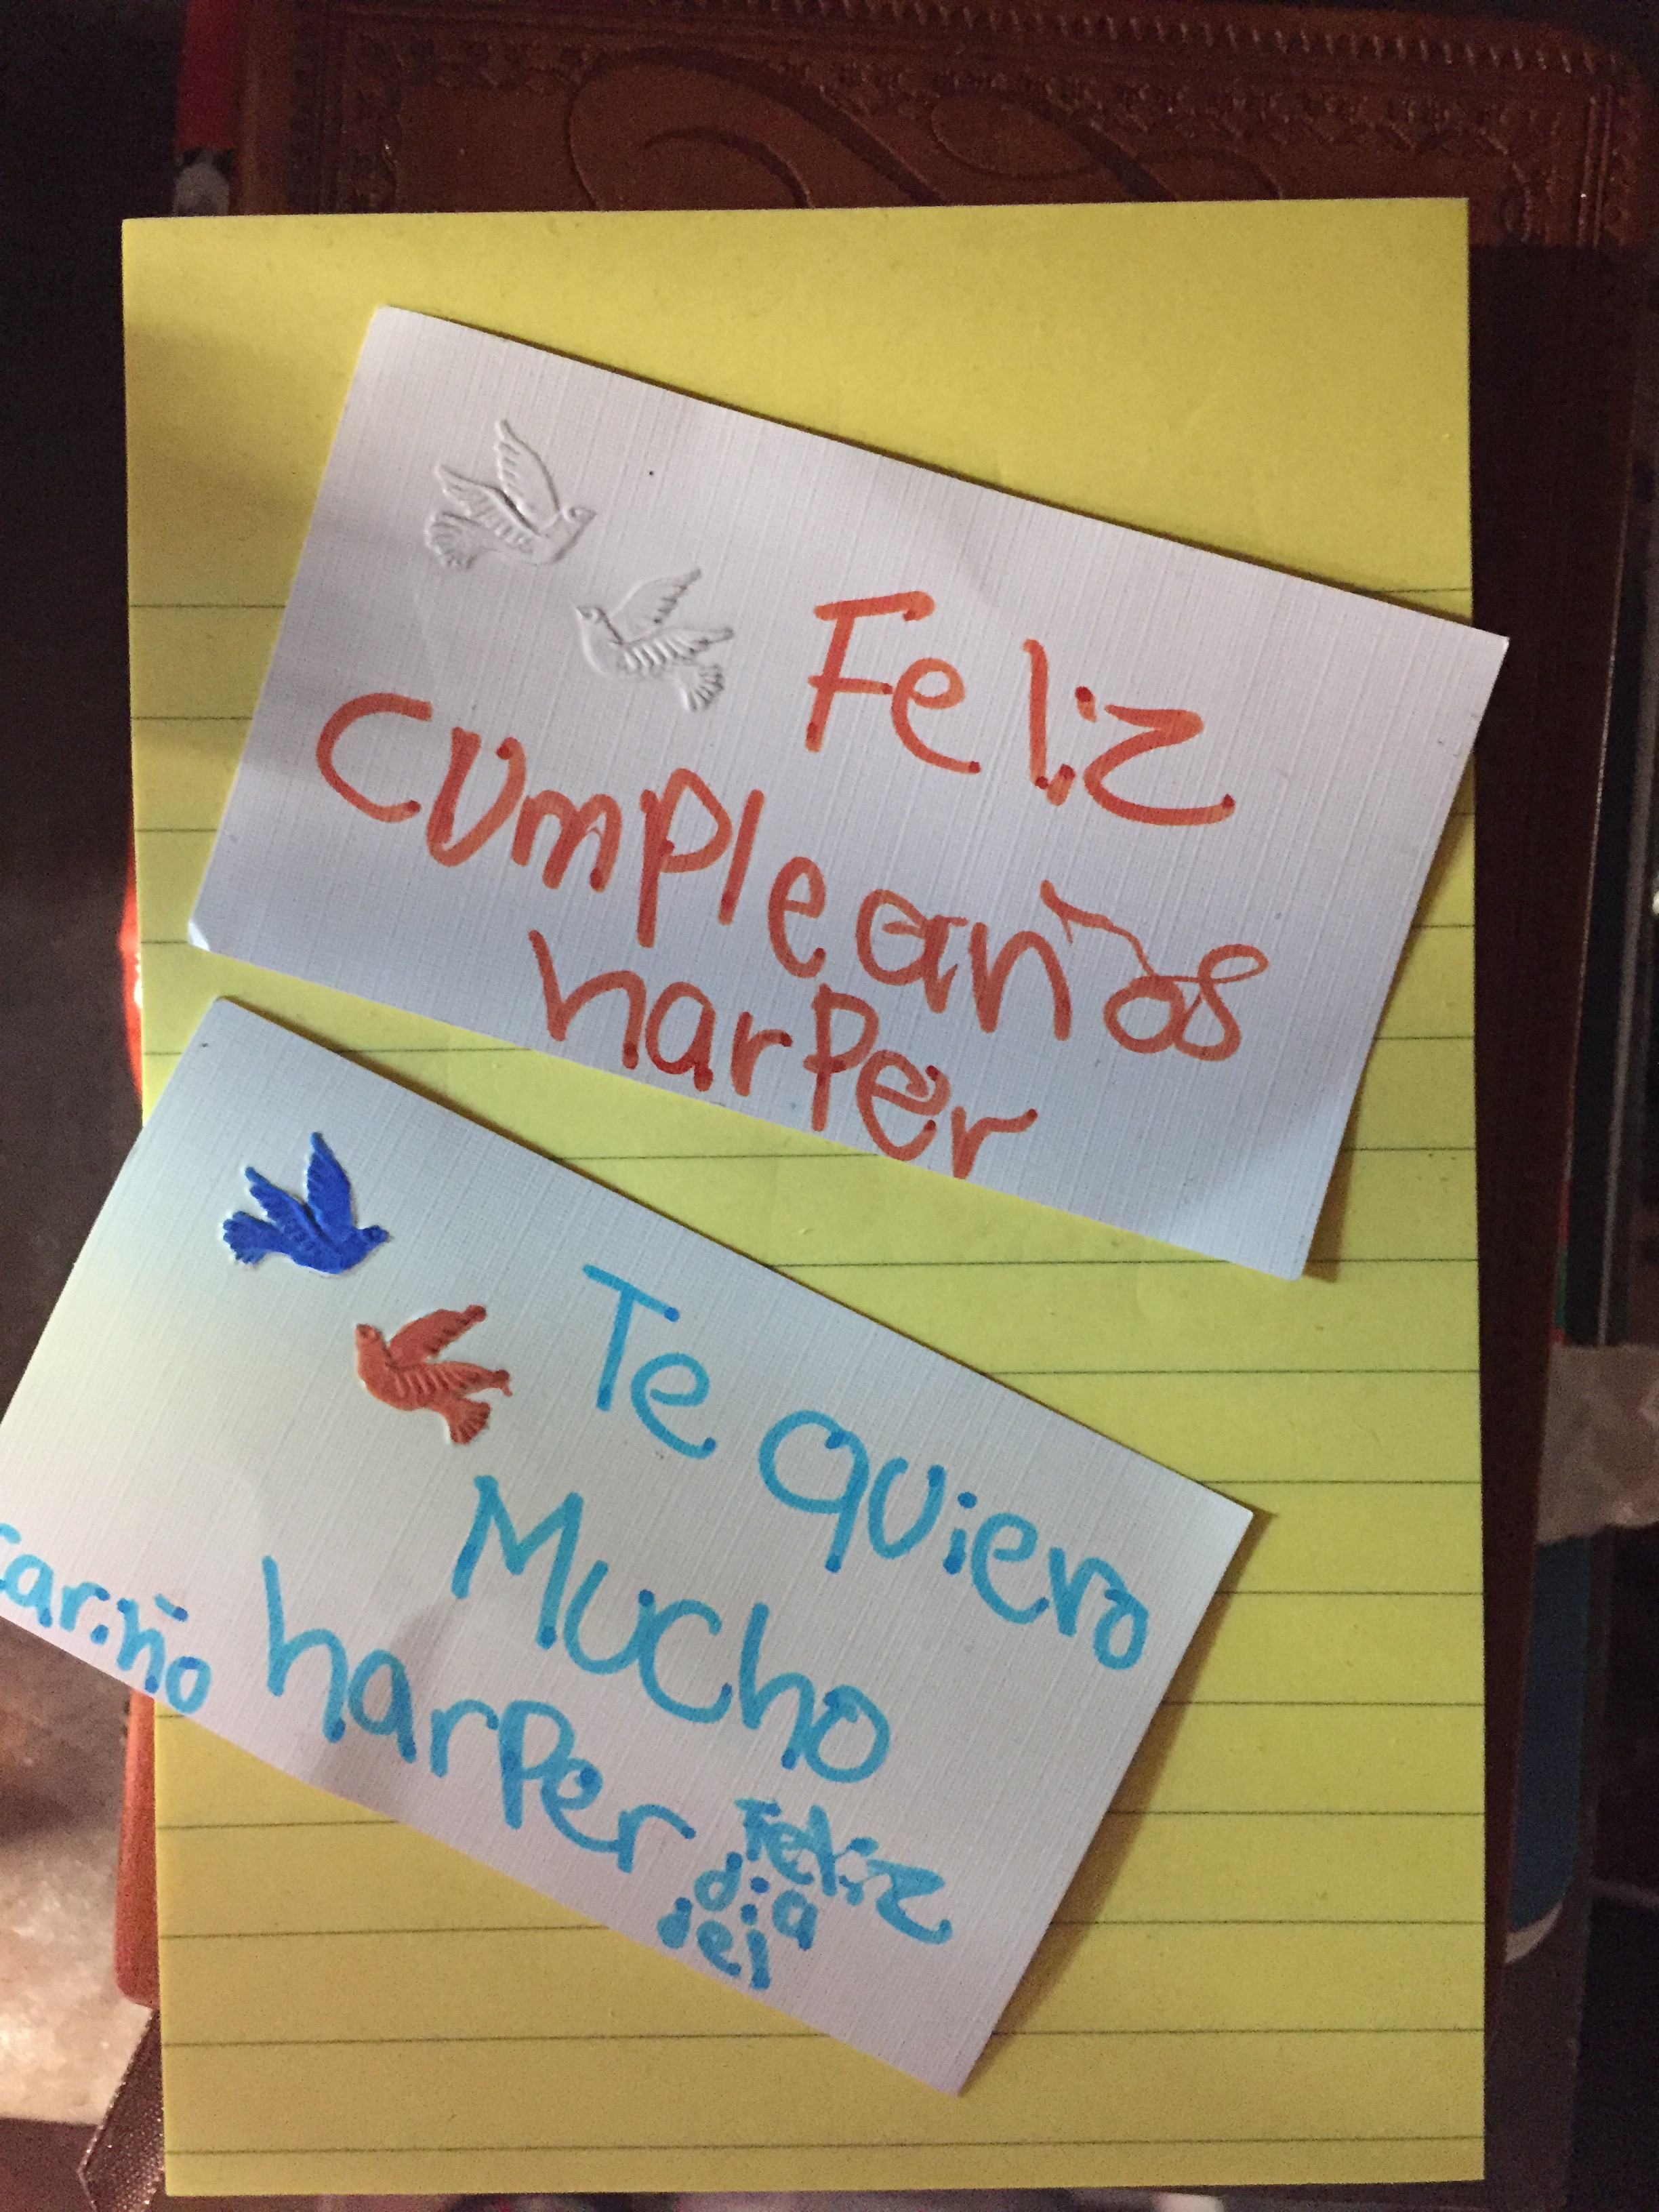 Feliz
cumpleaños
harper
Te quiero
Mucho
cariño harper
Feliz
dia
del